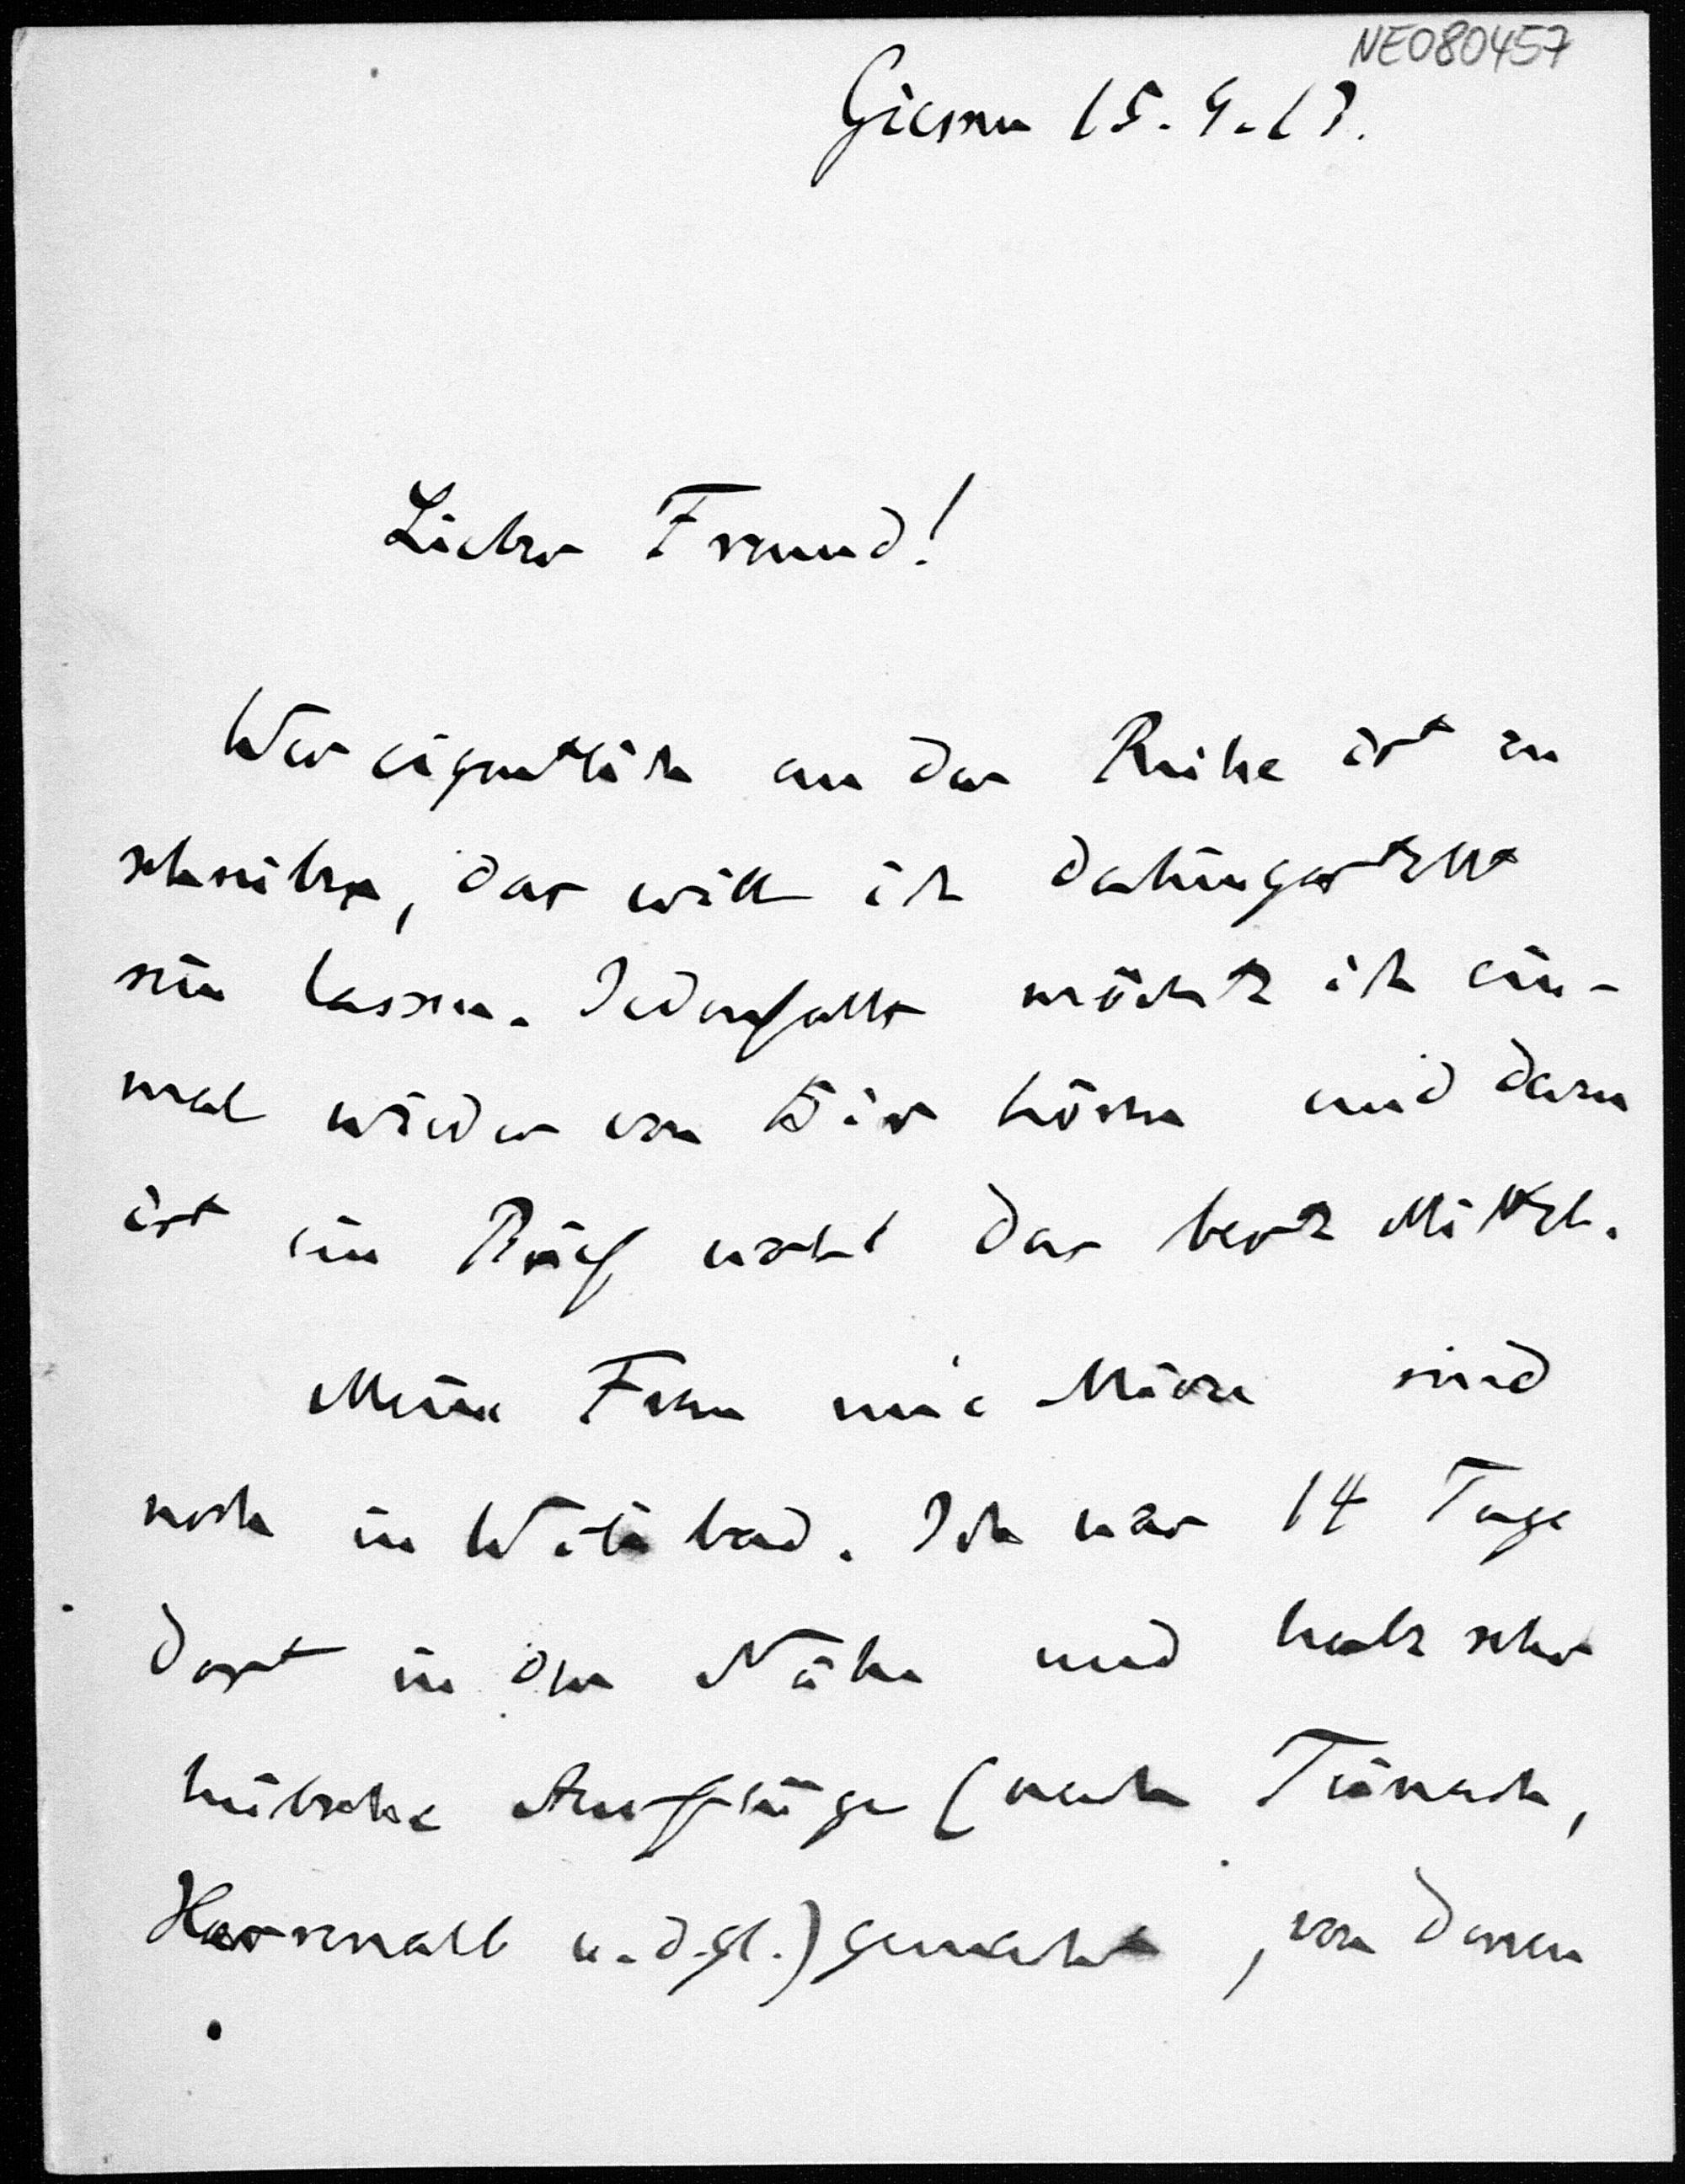 NE080457
Giessen 15.9.13.
Lieber Freund!
Wer eigentlich an der Reihe ist zu
schreiben, das will ich dahingestellt
sein lassen. Jedenfalls möchte ich ein-
mal wieder von Dir hören und dazu
ist ein Brief wohl das beste Mittel.
Meine Frau und sind
noch in Wildbad. Ich war 14 Tage
dort in der Nähe und habe sehr
hübsche Ausflüge (nach Teinach,
Herrenalb u. dgl.) gemacht, von denen